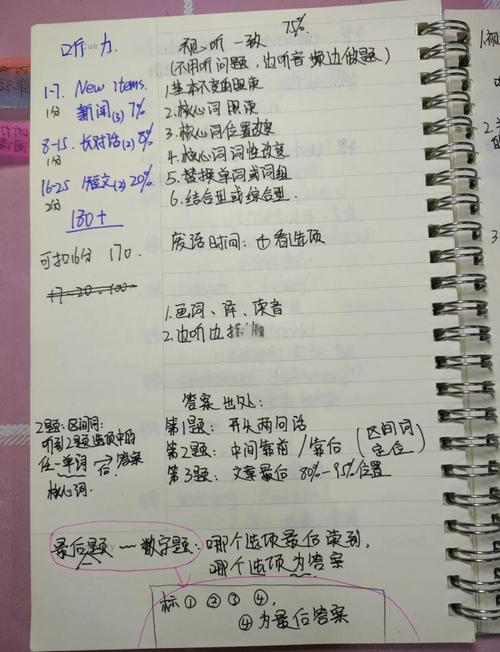 听力
Cue
1-7. New items.
1分 新闻(3) 7%
8-15. 长对话(2) 8%
1分
16-25 短文(2) 20%
2分
130+
可扣16分 170.
17-20.100
75%
视、听一致
(不用听问题,边听音频边做题)
1.基本不变的照读
2.核心词照读
3.核心词位置改变
4.核心词词性改变
5.替换单词或词组
6.结合型或综合型
废话时间:也看选项
1.画词、译、读音
2.边听边
答案出处:
第1题:开头两句话
第2题:中间靠前/靠后(区间词定位)
第3题:文章最后80%-95%位置
2题:区间词:
听到2题选项中的
任一单词→答案
核心词.
最后题—数字题:哪个选项最后读到,
哪个选项为答案
标①②③④,
④为最后答案